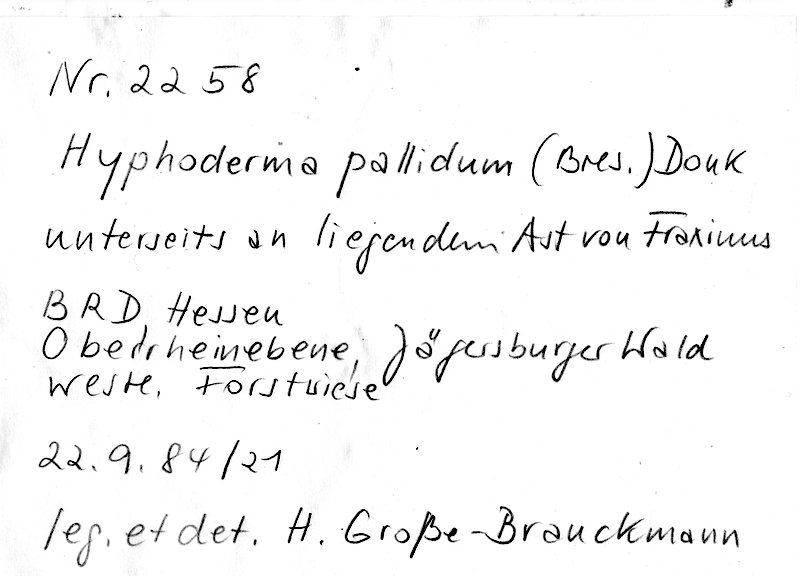 Nr. 2258
Hyphoderma pallidum (Bres.) Donk
unterseits an liegendem Ast von Fraxinus
BRD Hessen
Oberrheinebene, Jägersburger Wald
westl. Forstwiese
22.9.84/21
leg. et det. H. Große-Brauckmann